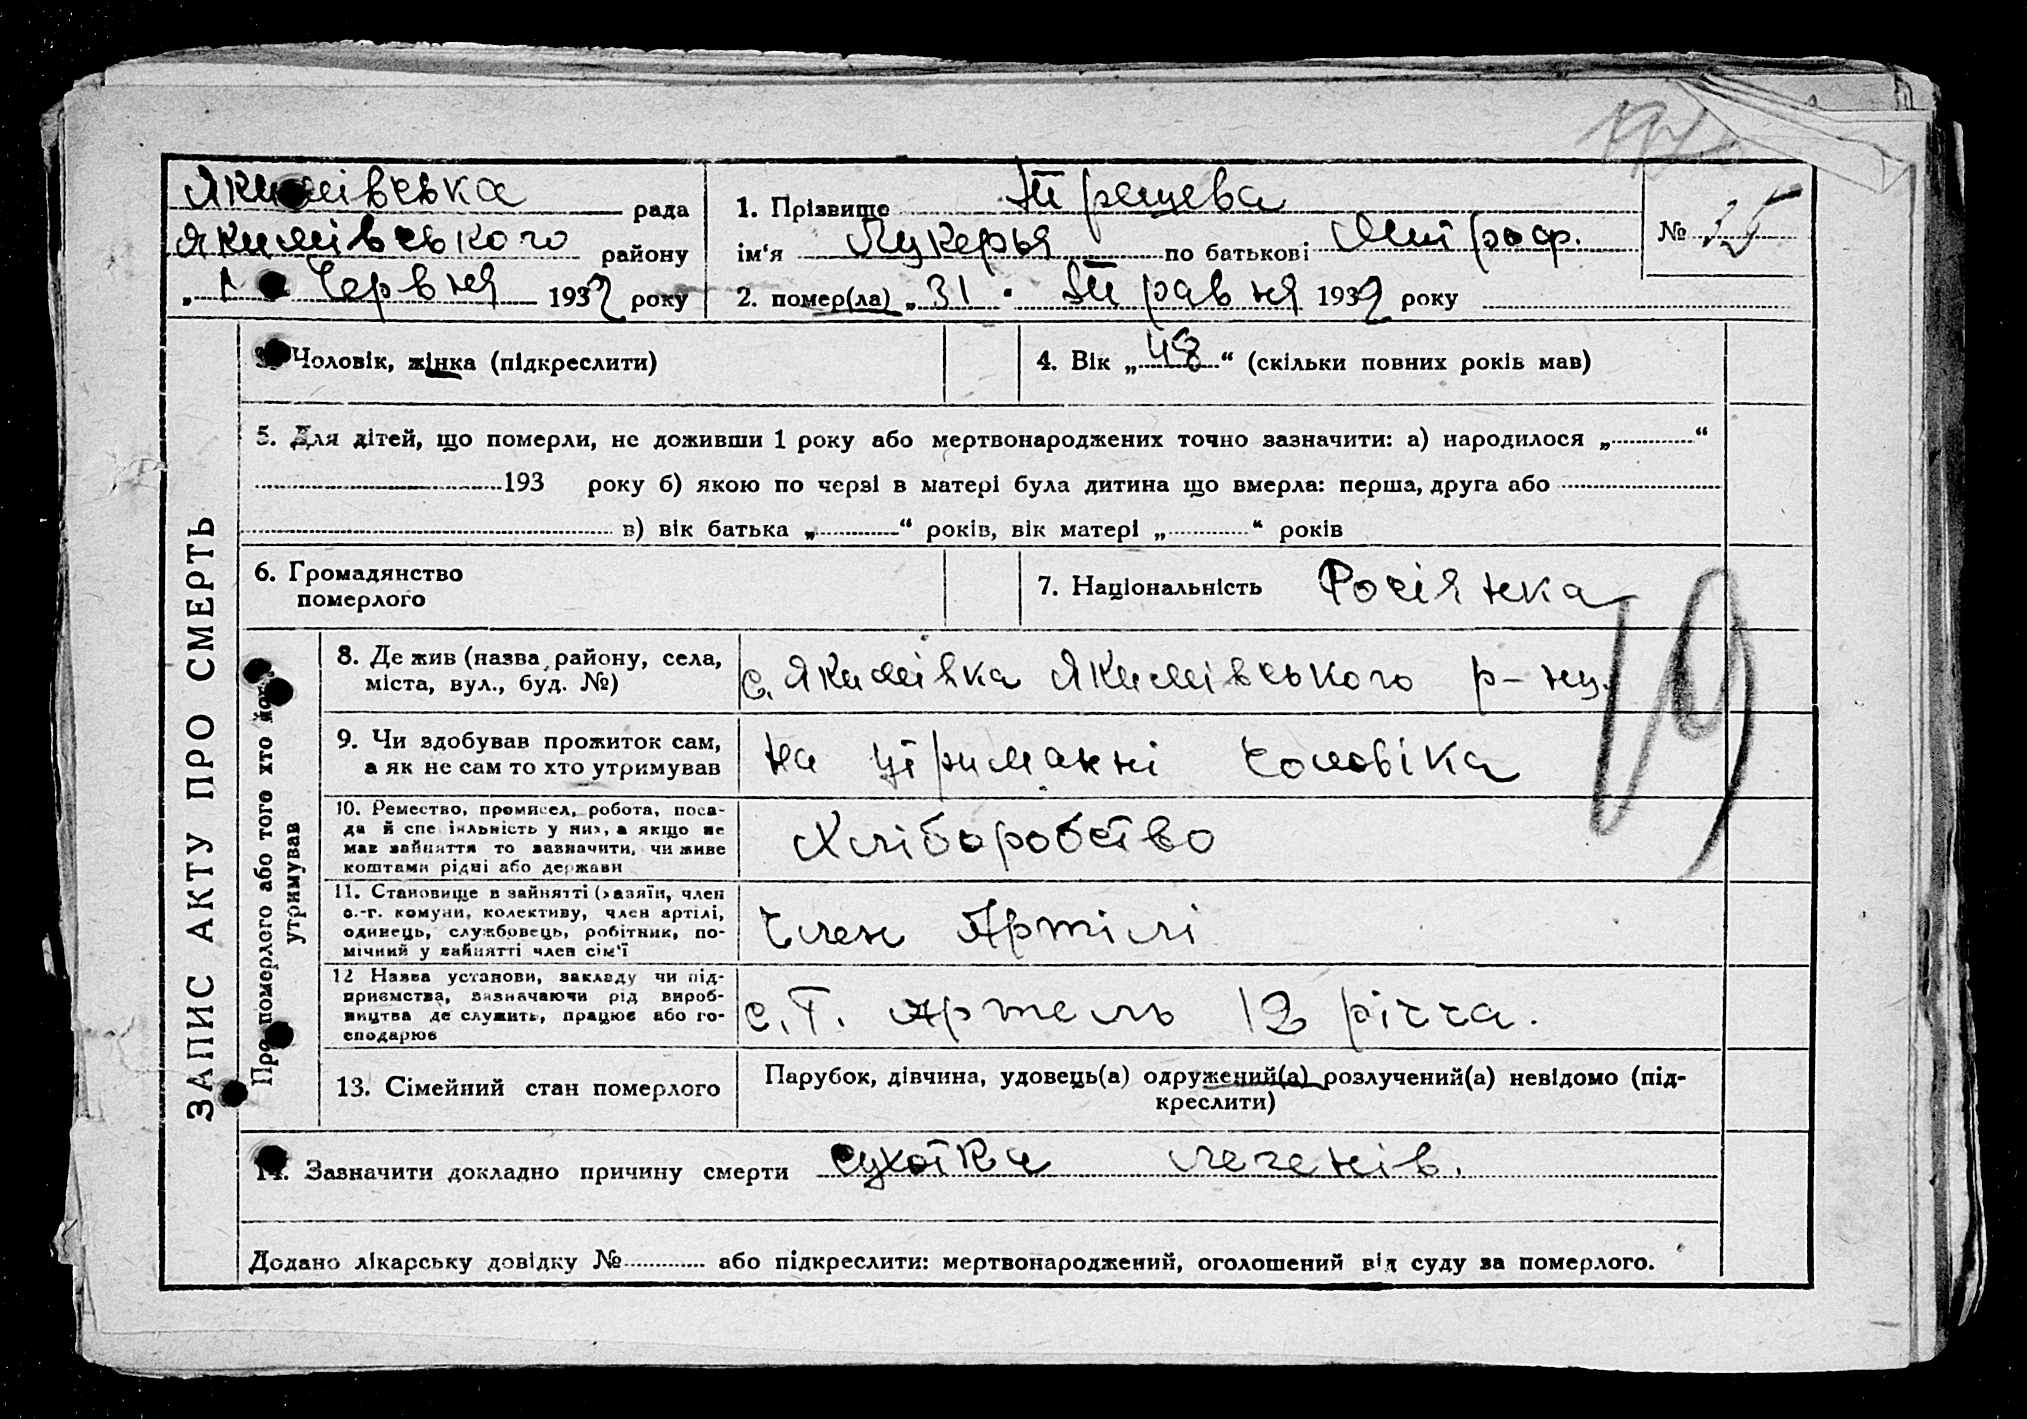 Якимівська рада
Якимівського району
„ 1 " Червня 1932 року
1. Прізвище Трещева
ім'я Лукерья по батькові Митроф.
2. помер(ла) „ 31 " Травня 1932 року
№ 35
ЗАПИС АКТУ ПРО СМЕРТЬ
3. Чоловік, жінка (підкреслити)
4. Вік „ 48 " (скільки повних років мав)
5. Для дітей, що померли, не доживши 1 року або мертвонароджених точно зазначити: а) народилося „ "
193 року б) якою по черзі в матері була дитина що вмерла: перша, друга або
в) вік батька „ " років, вік матері „ " років
6. Громадянство
померлого
7. Національність Росіянка
Про померлого або того хто його
утримував
8. Де жив (назва району, села,
міста, вул., буд. №)
с. Якимівка Якимівського р-ну.
9. Чи здобував прожиток сам,
а як не сам то хто утримував
на утриманні чоловіка
10. Ремество, промисел, робота, поса-
да й спеціяльність у них, а якщо не
мав зайняття то зазначити, чи живе
коштами рідні або держави
Хліборобство
11. Становище в зайнятті (хазяїн, член
с.-г. комуни, колективу, член артілі,
одинець, службовець, робітник, по-
мічний у зайнятті член сім'ї
Член Артілі
12 Назва установи, закладу чи під-
приємства, зазначаючи рід вироб-
ництва де служить, працює або го-
сподарює
с. г. артель 12 річча.
13. Сімейний стан померлого
Парубок, дівчина, удовець(а) одружений(а) розлучений(а) невідомо (під-
креслити)
14. Зазначити докладно причину смерти сухотка легенів.
Додано лікарську довідку № або підкреслити: мертвонароджений, оголошений від суду за померлого.
19